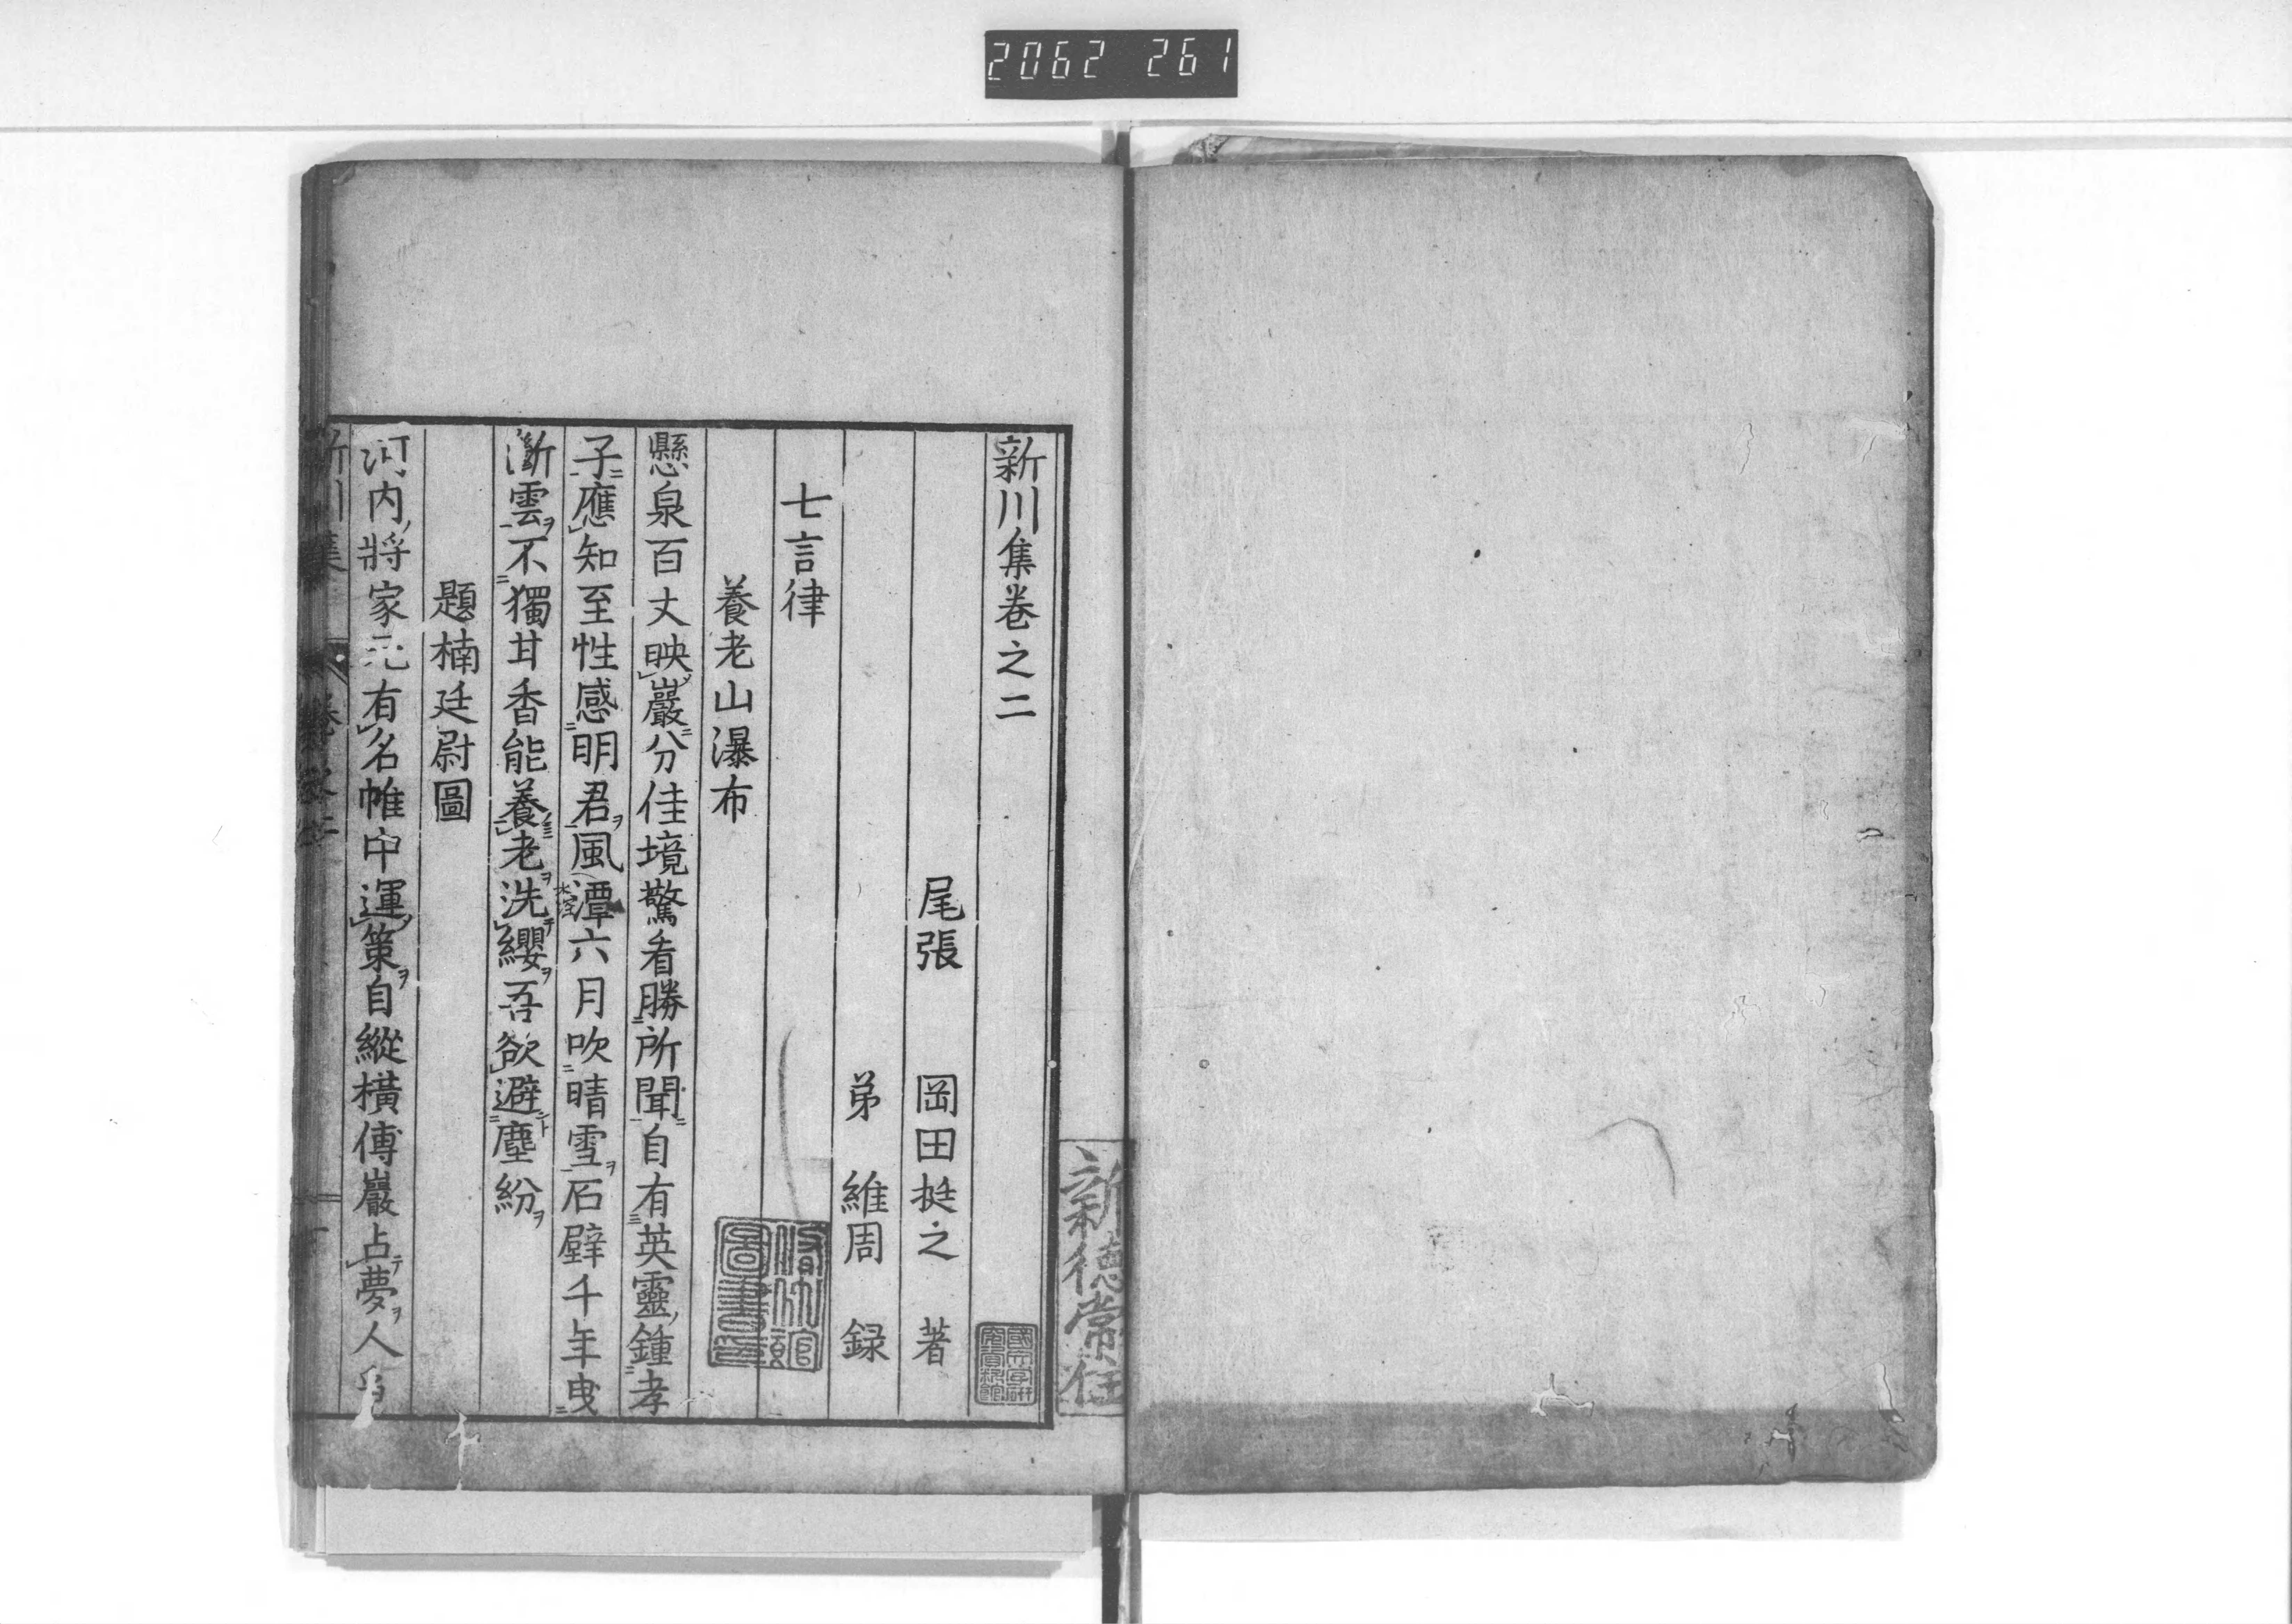 2062 261
新川集卷之二
尾張 岡田挺之 著
弟 維周 録
七言律
養老山瀑布
懸泉百丈映巖分佳境驚看勝所聞自有英靈鍾孝
子應知至性感明君風潭六月吹晴雪石壁千年曳
澵雲不獨甘香能養老洗纓吾欲避塵紛
題楠廷尉圖
河内將家元有名帷中運策自縱横傅巖占夢人
新川集 卷之二 一
新德常住
脩竹館圖書記